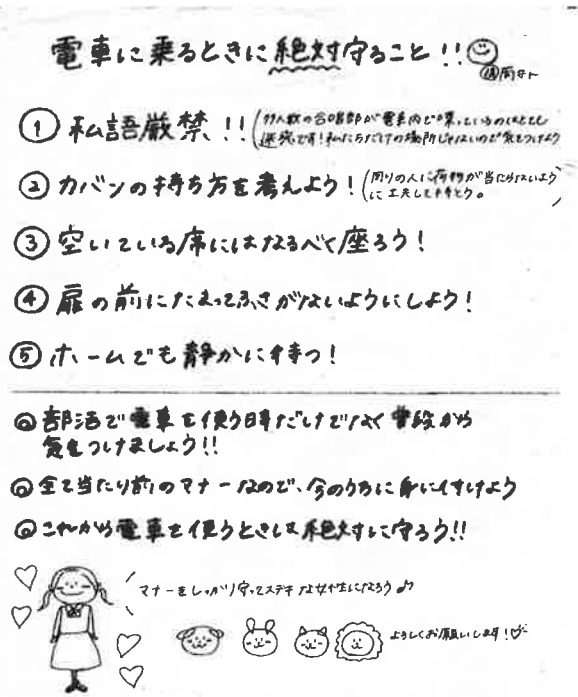 電車に乗るときに絶対守ること!!
① 私語厳禁!!(大人数の合唱部が電車内で喋っているのはとても
迷惑です!私たちだけの場所じゃないので気をつけよう
② カバンの持ち方を考えよう!(周りの人に荷物が当たらないよう
に工夫して持とう。
③ 空いている席にはなるべく座ろう!
④ 扉の前にたまってふさがないようにしよう!
⑤ ホームでも静かに待つ!
◎ 部活で電車を使う時だけでなく普段から
気をつけましょう!!
◎ 全て当たり前のマナーなので、今のうちに身につけよう
◎ これから電車を使うときは絶対に守ろう!!
マナーをしっかり守ってステキな女性になろう♪
よろしくお願いします!♡